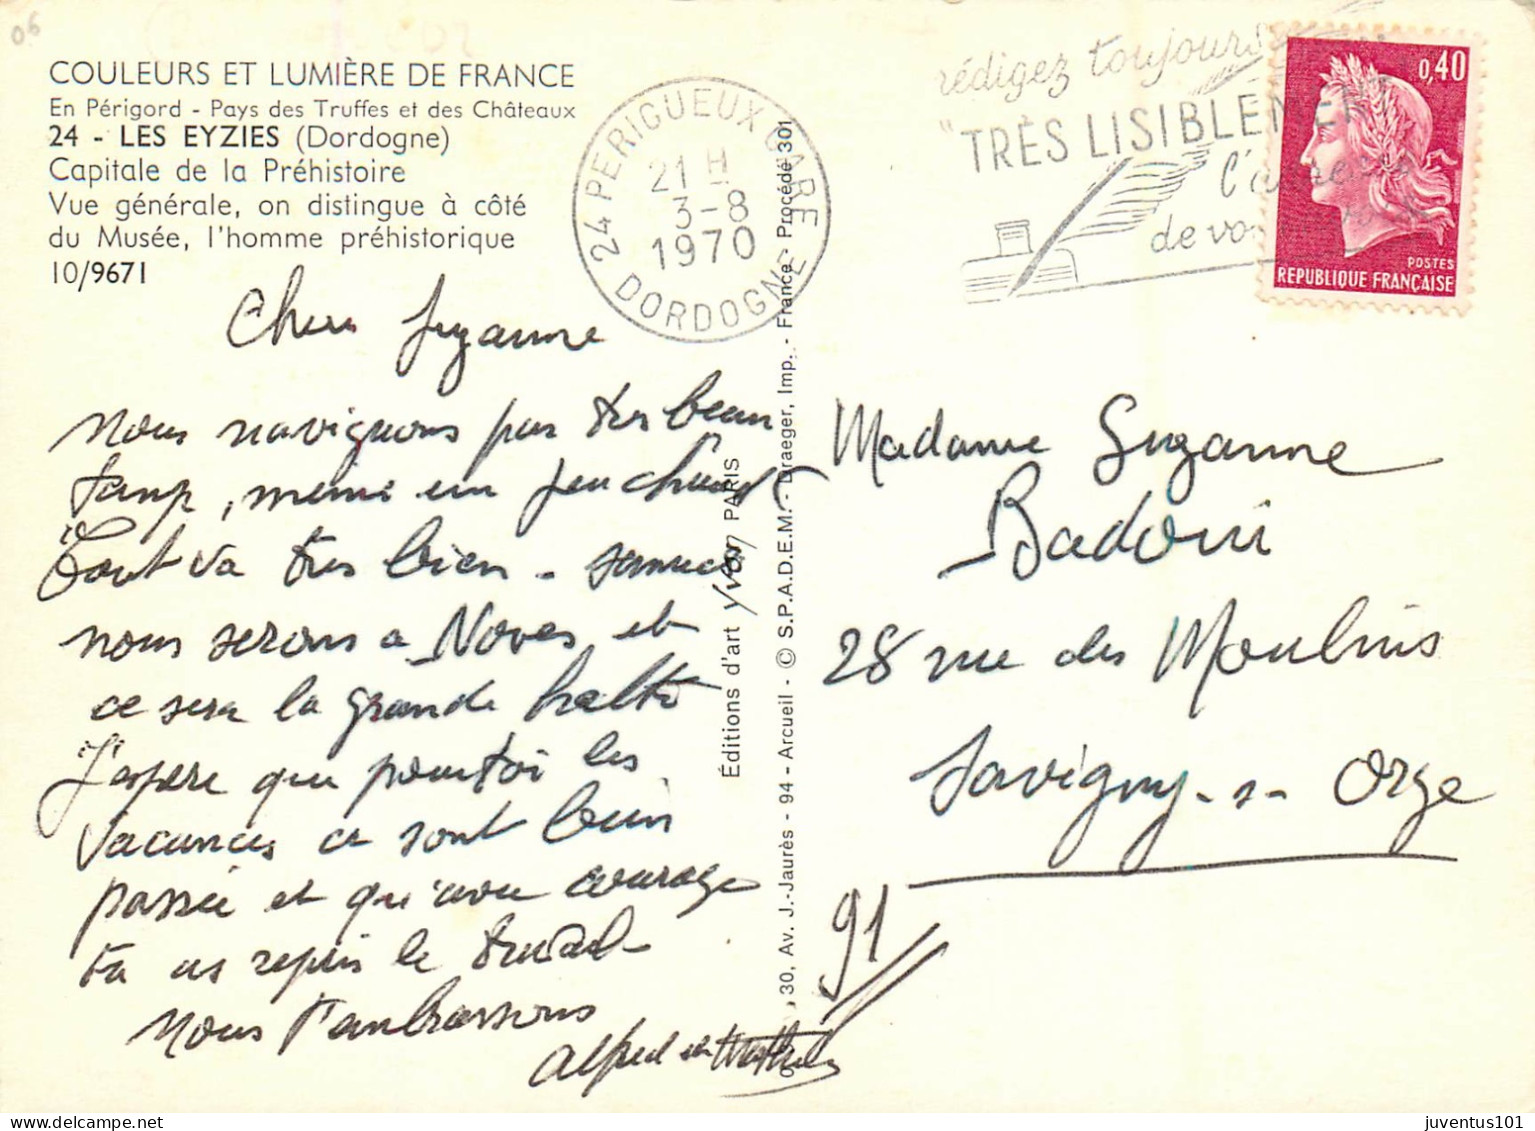 06
COULEURS ET LUMIÈRE DE FRANCE
En Périgord - Pays des Truffes et des Châteaux
24 - LES EYZIES (Dordogne)
Capitale de la Préhistoire
Vue générale, on distingue à côté
du Musée, l'homme préhistorique
10/9671
24 PERIGUEUX GARE
21 H
3-8
1970
DORDOGNE
rédigez toujours
"TRÈS LISIBLEMENT
l'adresse
de vos
0,40
POSTES
REPUBLIQUE FRANÇAISE
Chere Suzanne
nous naviguons par tres beau
temp, meme un peu chaud
Tout va tres bien - samedi
nous serons a Noves et
ce sera la grande halte
J'espere que pour toi les
vacances ce sont bien
passée et qu'avec courage
tu as repris le travail
nous t'embrassons
Alfred et
Éditions d'art yvon PARIS
30, Av. J.-Jaurès - 94 - Arcueil - © S.P.A.D.E.M. - Draeger, Imp. - France - Procédé 301
Madame Suzanne
Badoui
28 rue des Moulins
Savigny-s-Orge
91
juventus101